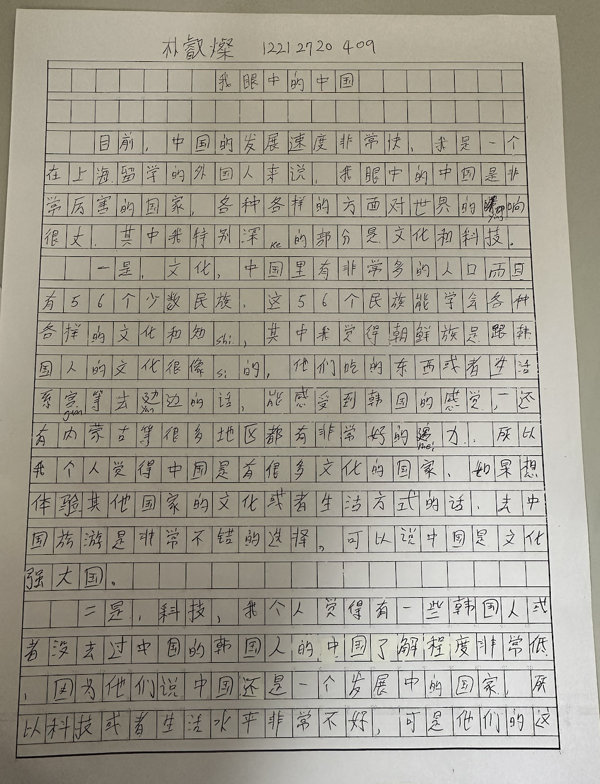 朴叡燦 1221 2720 409
我眼中的中国
目前，中国的发展速度非常快，我是一个
在上海留学的外国人来说，我眼中的中国是非
常厉害的国家，各种各样的方面对世界的影响
很大．其中我特别深ke的部分是文化和科技。
一是，文化，中国里有非常多的人口而且
有56个少数民族．这56个民族能学会各种
各样的文化和知shi，其中我觉得朝鲜族是跟韩
国人的文化很像si的，他们吃的东西或者生活
guan等去边边的话，能感受到韩国的感觉，还
有内蒙古等很多地区都有非常好的mei力．所以
我个人觉得中国是有很多文化的国家．如果想
体验其他国家的文化或者生活方式的话，去中
国旅游是非常不错的选择。可以说中国是文化
强大国。
二是，科技，我个人觉得有一些韩国人或
者没去过中国的韩国人的中国了解程度非常低
，因为他们说中国还是一个发展中的国家，所
以科技或者生活水平非常不好，可是他们的这